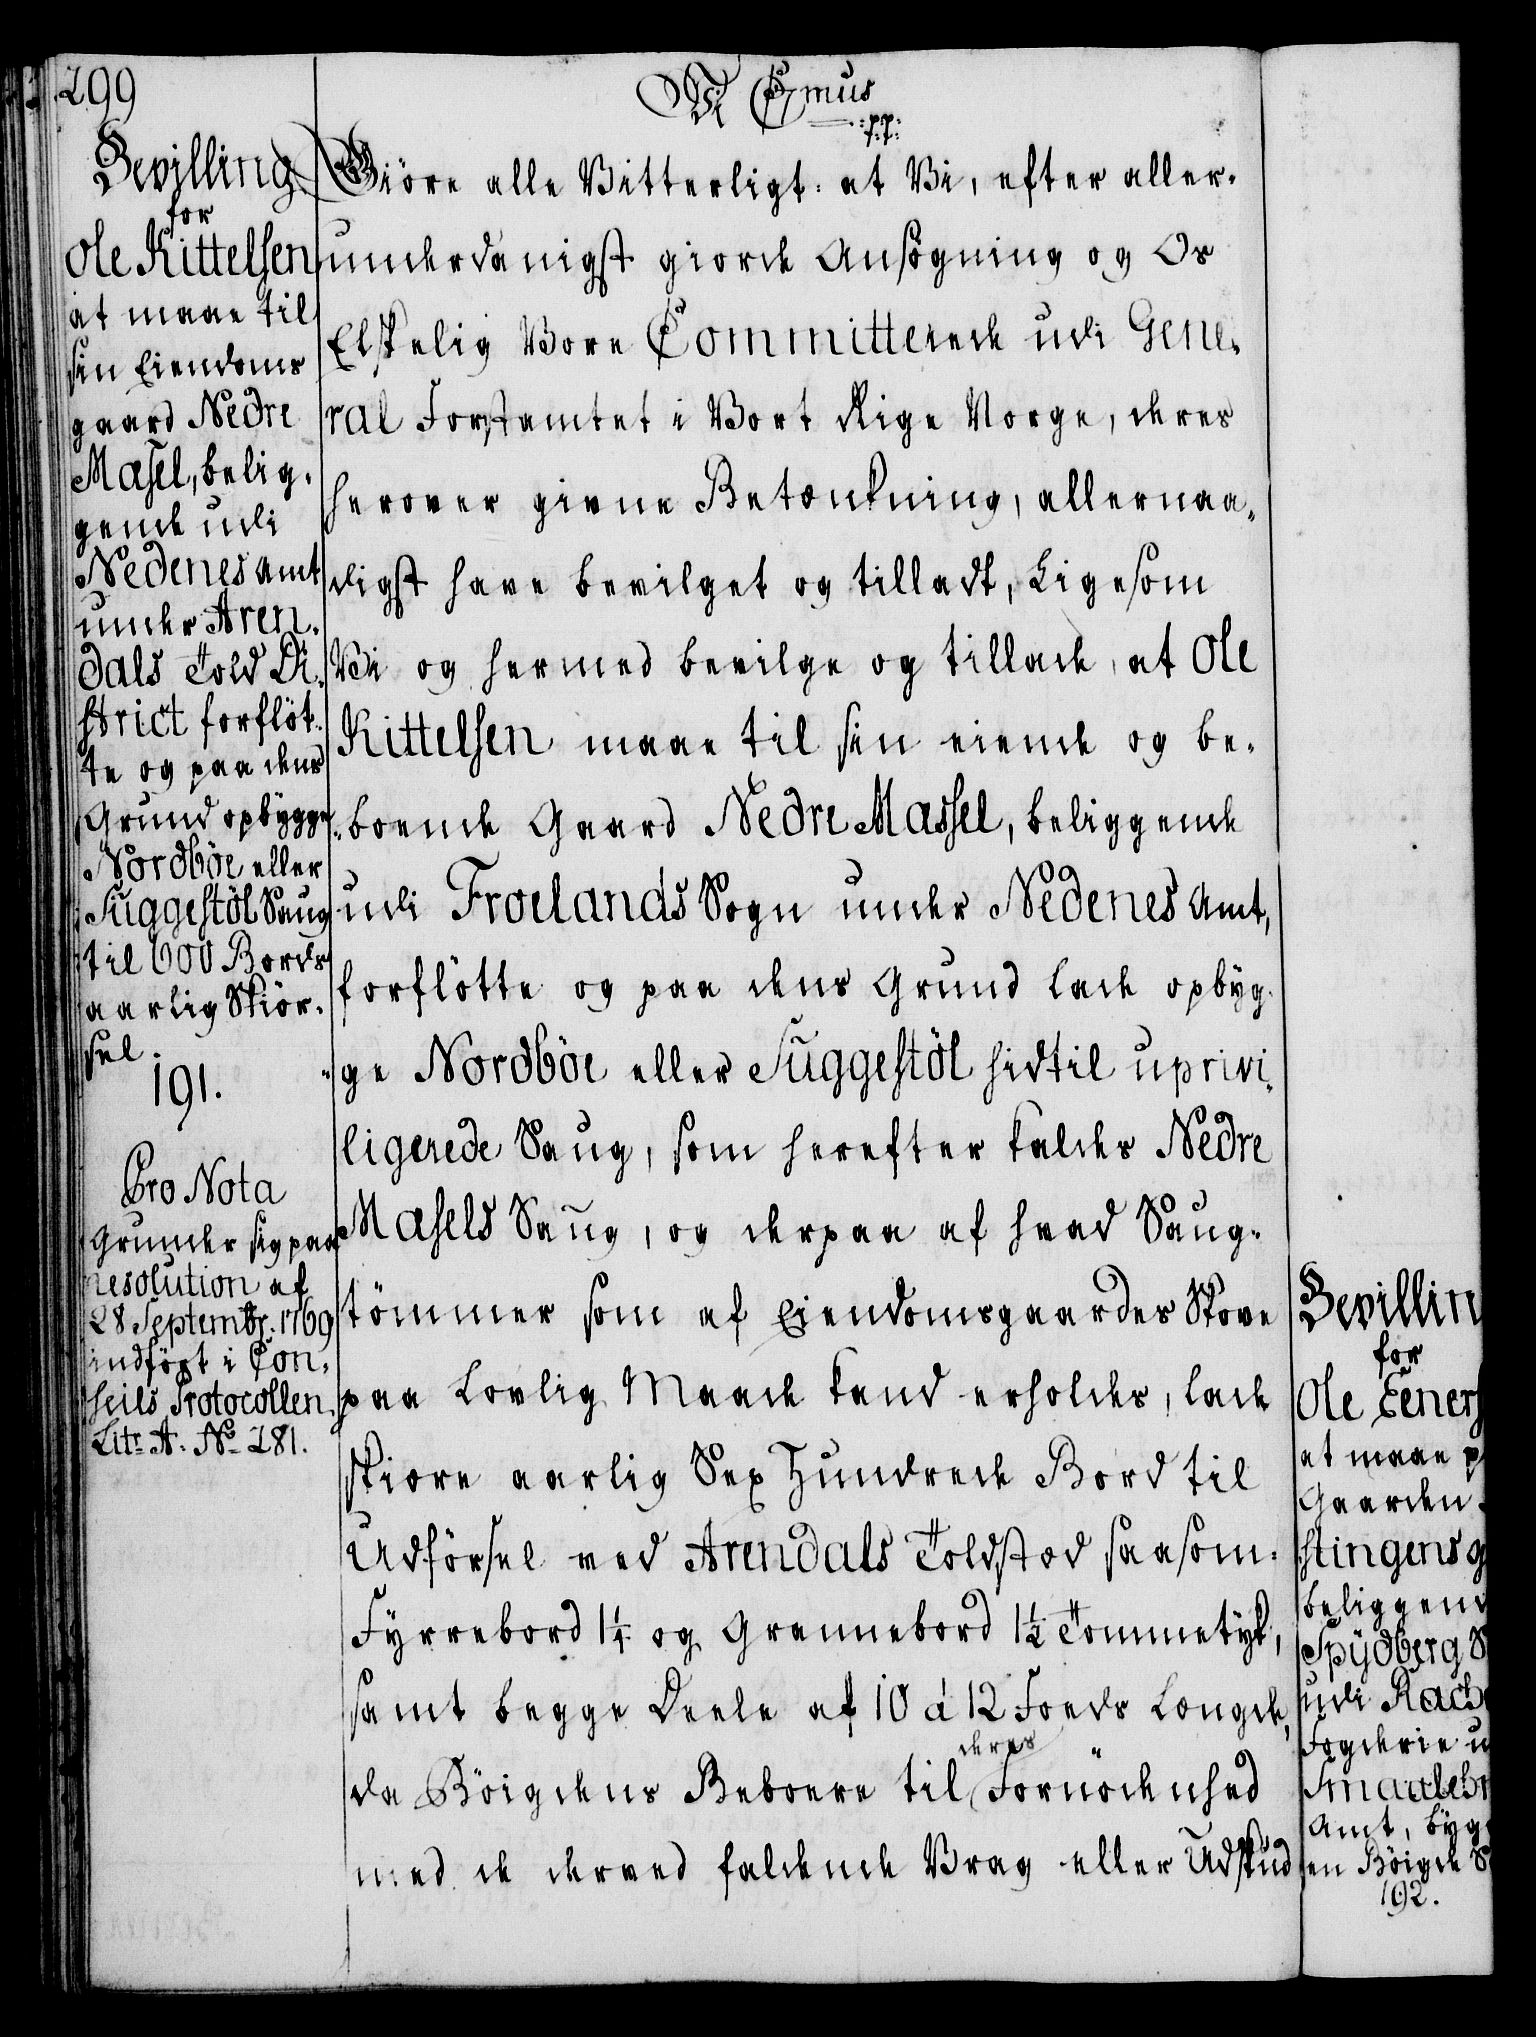 299
Bevilling
for
Ole Kittelsen
at maae til
sin Eiendoms
gaard Nedre
Masel, belig-
gende udi
Nedenes Amt
under Aren-
dals Told Di-
strict forflöt-
te og paa dens
Grund opbygge
Nordböe eller
Suggestöl Saug
til 600 Bords
aarlig Skiör-
sel.
191.
Pro Nota
Grunder sig paa
resolution af
28 Septembr. 1769
indfört i Con-
seils Protocollen
Litr. A. No 281.
Vi C 7mus
p.p.
Giöre alle Vitterligt: at Vi, efter aller-
underdanigst giorde Ansögning og Os
Elskelig Vore Committerede udi Gene-
ral Forstamtet i Vort Rige Norge, deres
herover givne Betænkning, allernaa-
digst have bevilget og tilladt, Ligesom
Vi og hermed bevilge og tillade, at Ole
Kittelsen maae til sin eiende og be-
boende Gaard Nedre Massel, beliggende
udi Froelands Sogn under Nedenes Amt,
forflötte og paa dens Grund lade opbyg-
ge Nordböe eller Suggestöl hidtil uprivi-
ligerede Saug, som herefter kaldes Nedre
Masels Saug, og derpaa af hvad Saug-
tömmer som af Eiendomsgaardes Skove
paa Lovlig Maade kand erholdes, lade
skiære aarlig Sex Hundrede Bord til
Udförsel ved Arendals Toldsted saasom:
Fyrrebord 1 1/4 og Grannebord 1 1/2 Tommetyk,
samt begge Deele af 10 á 12 Foeds Længde,
da Böigdens Beboere til deres Fornödenhed
med de derved faldende Vrag eller Udskud
Bevillin
for
Ole Eeners
at maae p
Gaarden
stingens g
beliggend
Spydberg S
udi Rach
Fogderie u
Smaaleh
Amt, byg
en Böigde S
192.